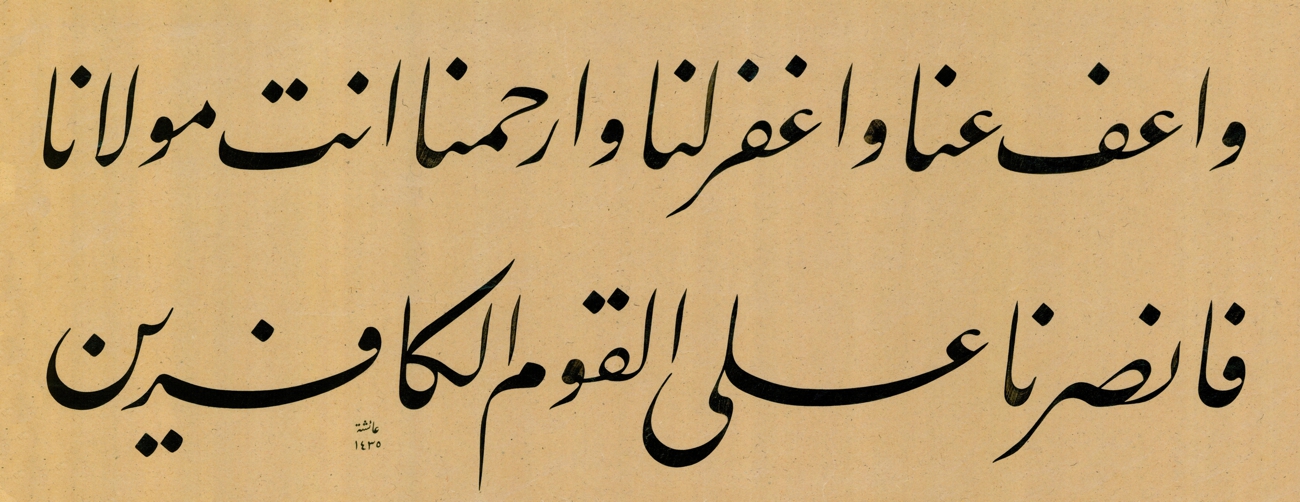 واعف عنا واغفر لنا وارحمنا انت مولانا
فانصرنا على القوم الكافرين
عائشة
١٤٣٥